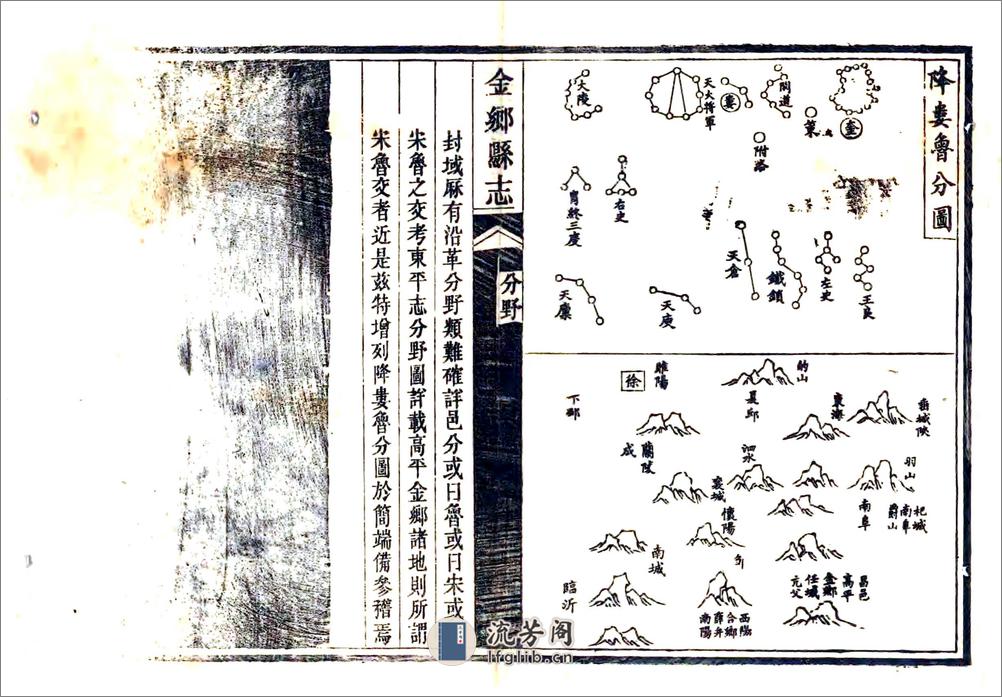 降婁魯分圖
奎
閣道
婁
天大將軍
大陵
附路
右史
胃終三度
王良
左史
鐵鎖
天倉
天庾
天廩
的山
睢陽
徐
下邳
夏邱
東海
羽山
泗水
蘭陵
成
襄城
懷陽
南城
臨沂
杞城
南阜
爵山
南阜
昌邑
高平
金鄉
任城
亢父
西陽
合鄉
薛弁
南陽
金鄉縣志
分野
封域厤有沿革分野類難確詳邑分或曰魯或曰宋或
宋魯之交考東平志分野圖詳載高平金鄉諸地則所謂
宋魯交者近是茲特增列降婁魯分圖於簡端備參稽焉
流芳閣
lfglib.cn